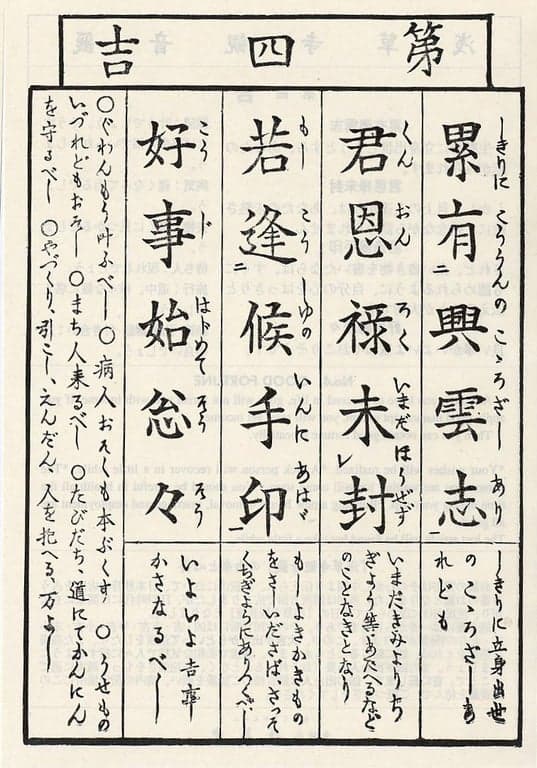 第四吉
しきりに こううんの こころざし あり
累有ニ興雲志
しきりに立身出世
のこころざしあ
れども
くん おん ろく いまだ ほーぜず
君恩祿未レ封
いまだきみよりち
ぎよう等あたへるなど
のことなきとなり
もし こうしゆの いんに あはゞ
若逢ニ候手印一
もしよきかきもの
をさしいださばさつそ
くちぎようにありつくべし
こう じ はじめて そう そう
好事始忩々
いよいよ吉事
かさなるべし
○ぐわんもう叶ふべし ○病人おそくも本ぷくす ○うせもの
いづれどもおそし ○まち人来るべし ○たびだち、道にてかんにん
を守るべし ○やづくり、引こし、えんだん、人を抱へる万よし